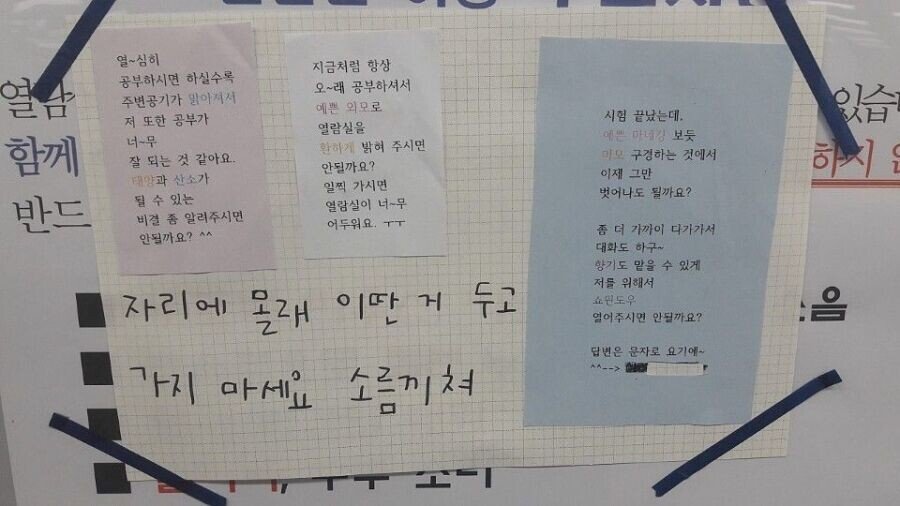 열~심히
공부하시면 하실수록
주변공기가 맑아져서
저 또한 공부가
너~무
잘 되는 것 같아요.
태양과 산소가
될 수 있는
비결 좀 알려주시면
안될까요? ^^
지금처럼 항상
오~래 공부하셔서
예쁜 외모로
열람실을
환하게 밝혀 주시면
안될까요?
일찍 가시면
열람실이 너~무
어두워요. ㅜㅜ
시험 끝났는데.
예쁜 마네킹 보듯
미모 구경하는 것에서
이제 그만
벗어나도 될까요?
좀 더 가까이 다가가서
대화도 하구~
향기도 맡을 수 있게
저를 위해서
쇼윈도우
열어주시면 안될까요?
답변은 문자로 요기에~
^^-->
자리에 몰래 이딴 거 두고
가지 마세요 소름끼쳐
열람
함께
반드
있습
하시
소음
소리